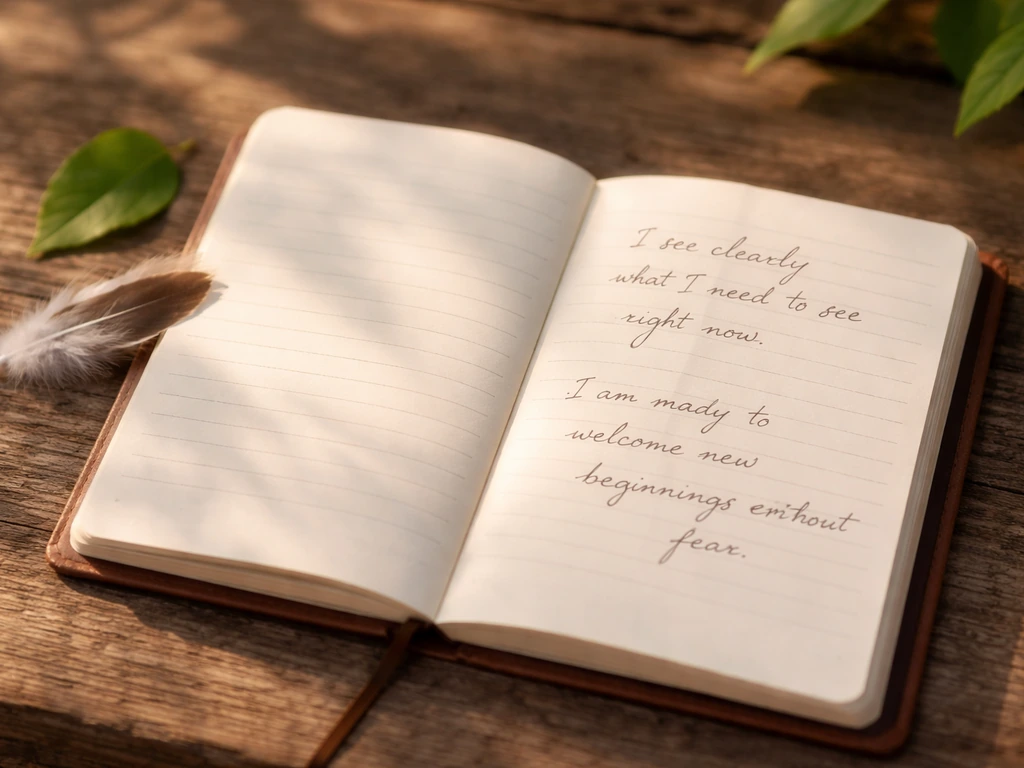 I see clearly
what I need to see
right now.
I am mady to
welcome new
beginnings emihout
fear.